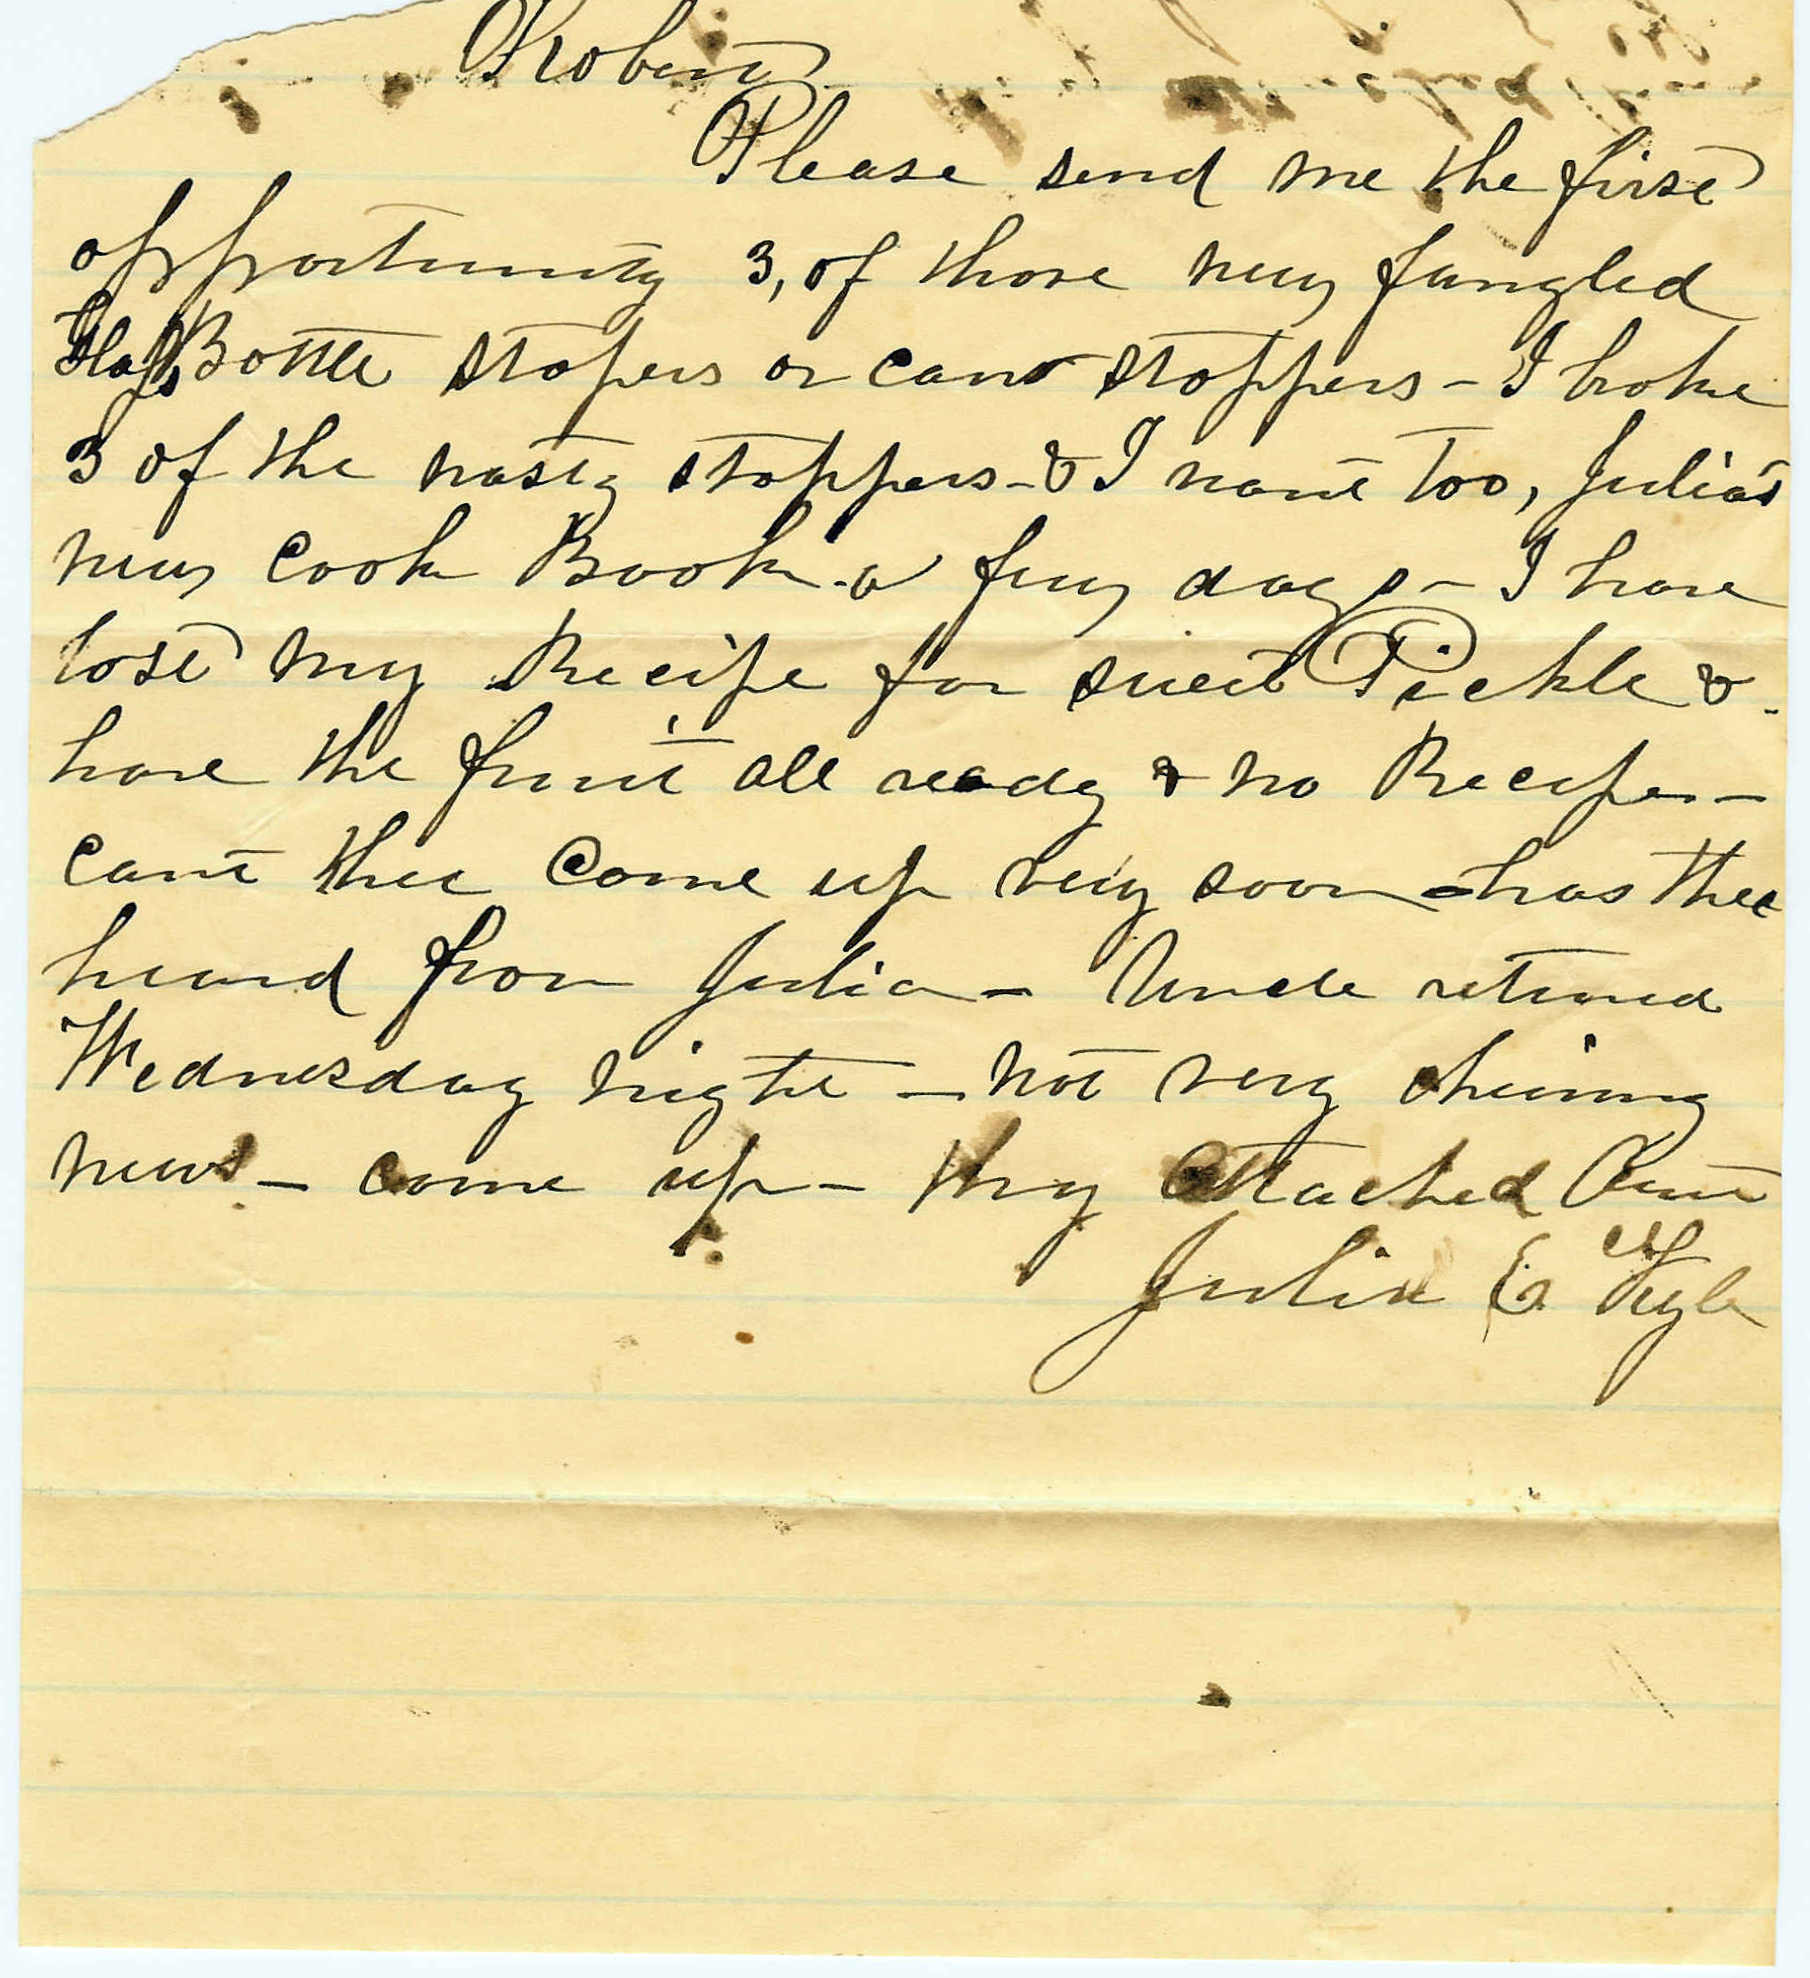 Robert
Please send me the first
opportunity 3, of those new fangled
Glass Bottle stopers or can stoppers - I broke
3 of the nasty stoppers - & I want too, Julia's
new Cook Book - a few days - I have
lost my Recipe for sweet Pickle &
have the fruit all ready & no Recipe -
cant thee come up very soon - has thee
heard from Julia - Uncle returned
Wednesday night - not very cheering
news - come up - thy attached Aunt
Julia E